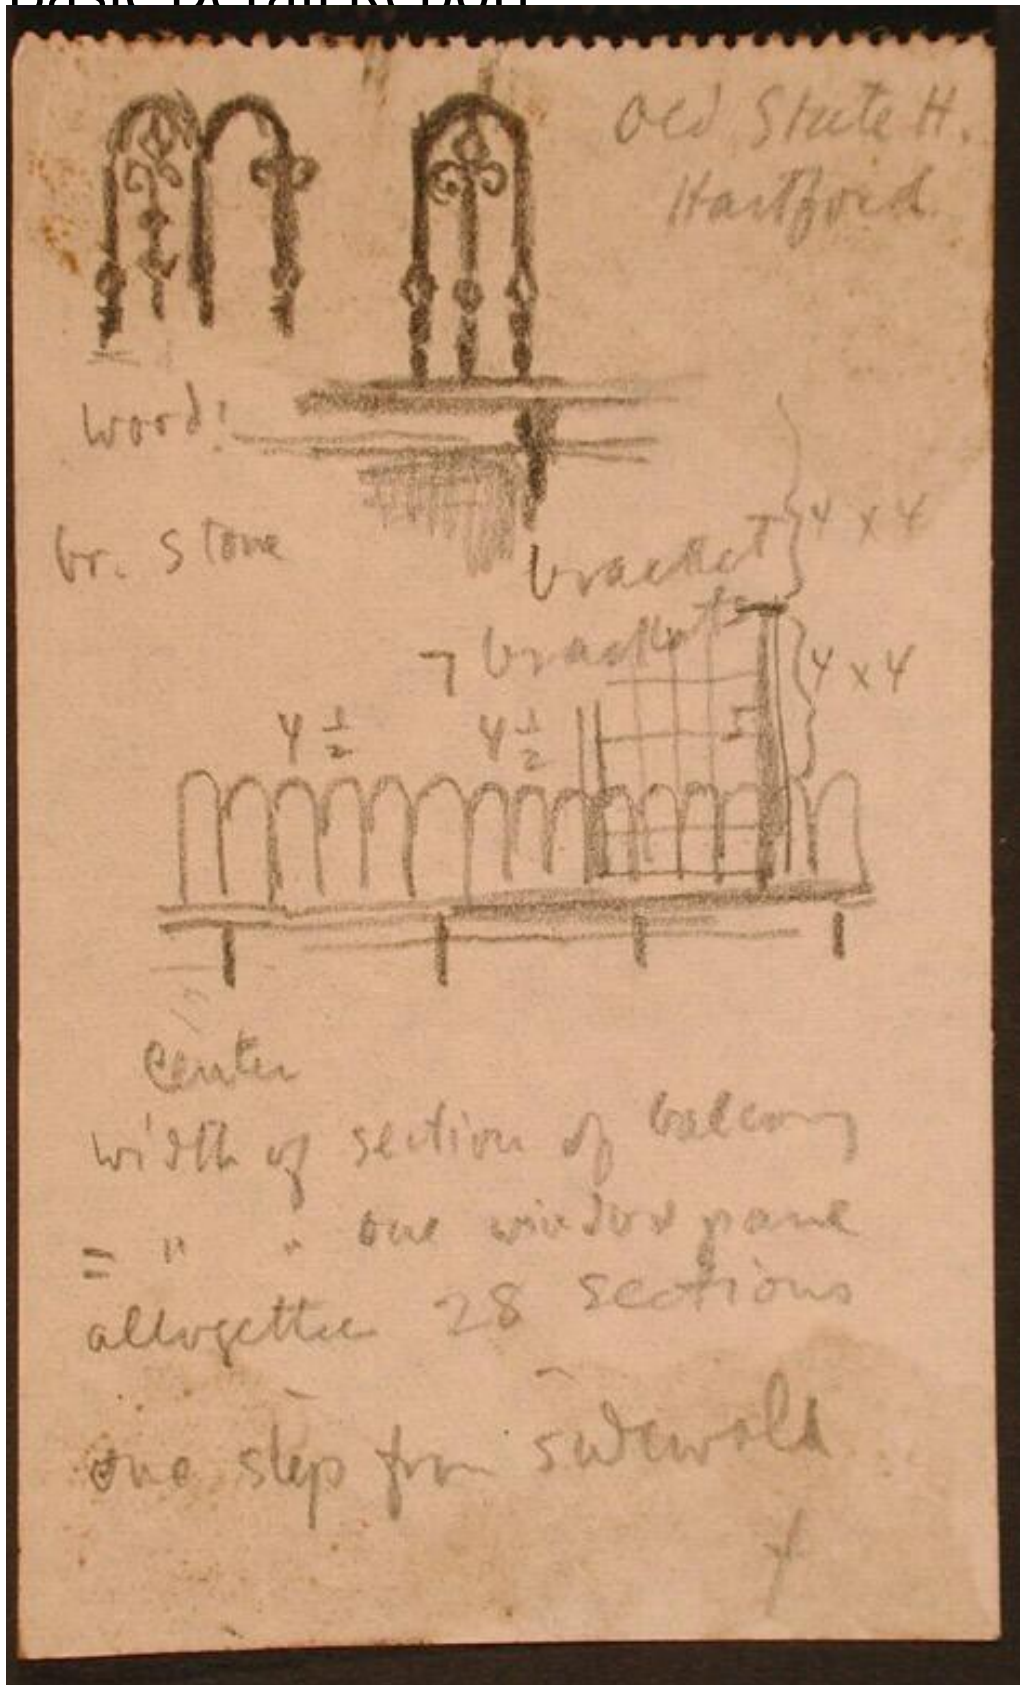 Basic Detail Report
Old State H.
Hartford
wood:
br. stone
bracket
4 x 4
7 brackets
4 x 4
4 1/2 4 1/2
5
Center
width of section of balcony
= " " one window pane
altogether 28 sections
one step from sidewalk